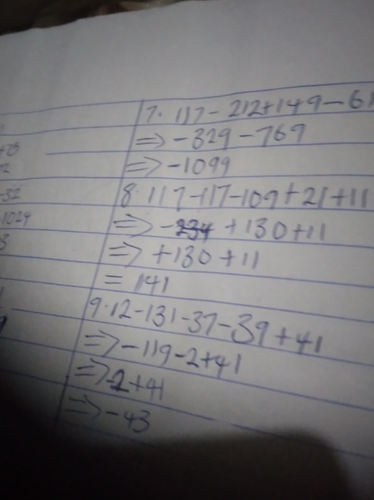 7. 117 - 212 + 149 - 61
⇒ -329 - 769
⇒ -1099
8. 117 - 117 - 109 + 21 + 11
⇒ -234 + 130 + 11
⇒ +130 + 11
= 141
9. 12 - 131 - 37 - 39 + 41
⇒ -119 - 2 + 41
⇒ 2 + 41
⇒ -43